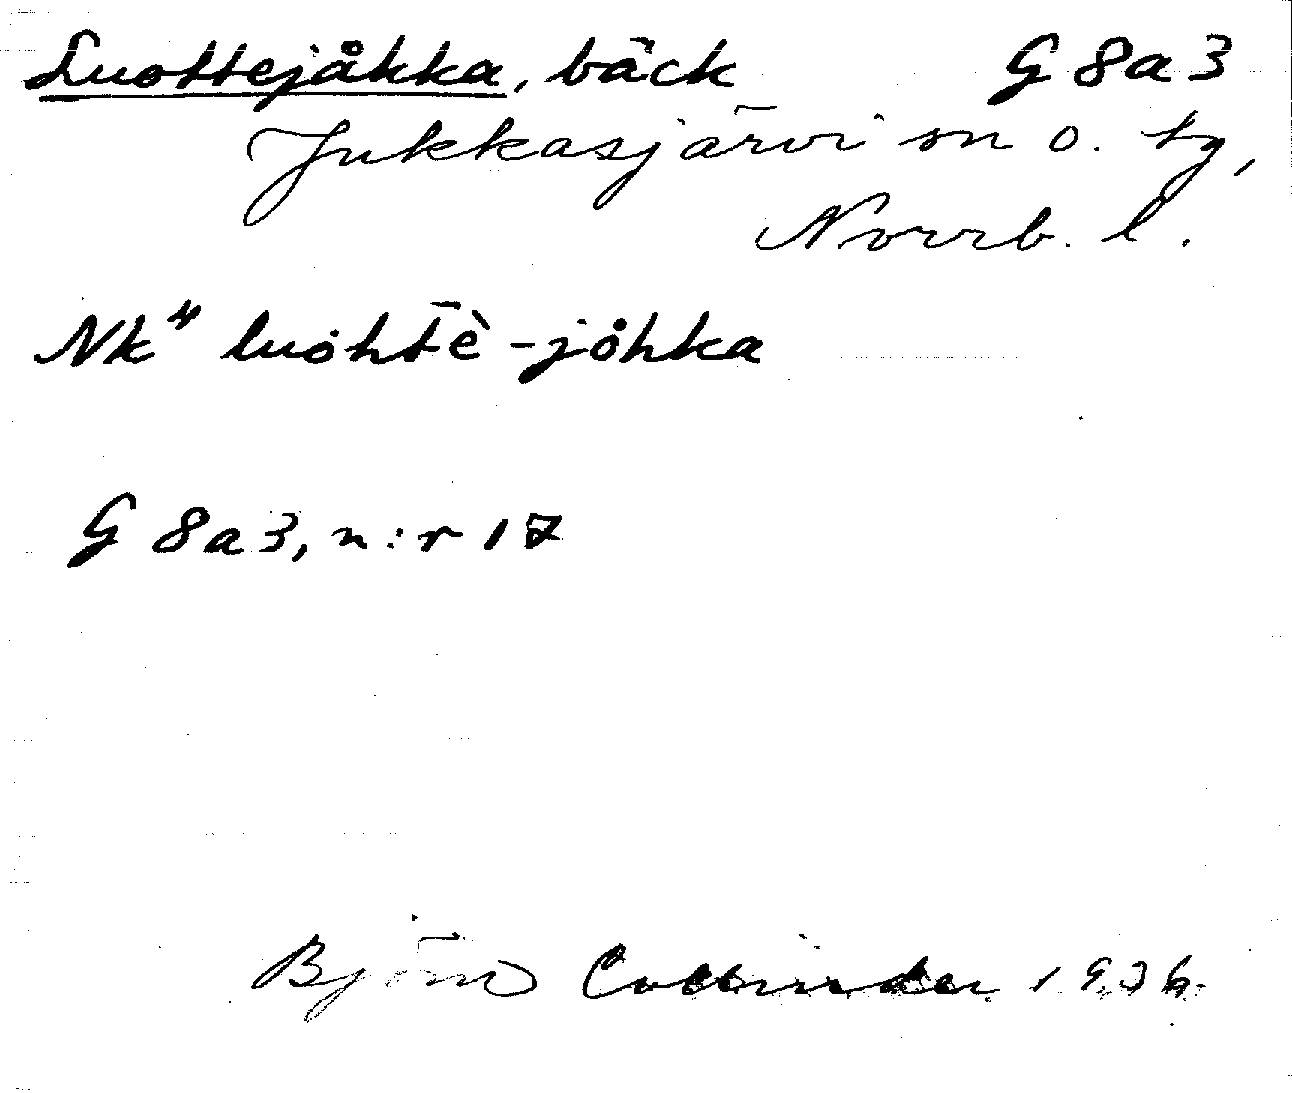 Luottejåkka, bäck G 8a3
Jukkasjärvi sn o. tg,
Norrb. l.
Nk" luohtè-jåhka
G 8a3, n:r 17
Björn Collinder 1936